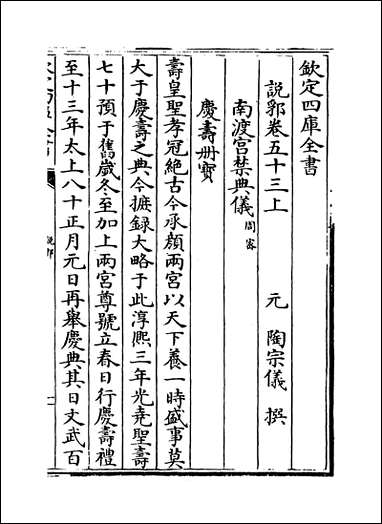 欽定四庫全書
說郛卷五十三上
元 陶宗儀 撰
南渡宮禁典儀 周密
慶壽册寶
壽皇聖孝冠絶古今承顔兩宮以天下養一時盛事莫
大于慶壽之典今摭録大略于此淳熈三年光堯聖壽
七十預于舊歲冬至加上兩宮尊號立春日行慶壽禮
至十三年太上八十正月元日再舉慶典其日文武百
說郛